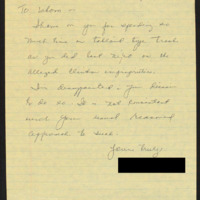 To: Whom —
Shame on you for spending so
much time on tabloid type trash
as you did last night on the
alleged Clinton improprieties.
I'm disappointed in your decision
to do so. It is not consistent
with your usual reasoned
approach to such.
Yours truly,